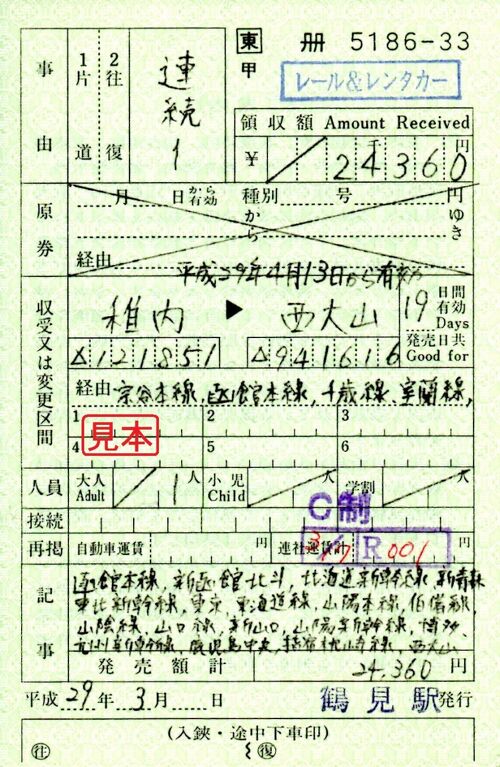 東 冊 5186-33
甲
レール&レンタカー
事由 1片道 2往復 連続1
領収額 Amount Received
¥ 24360 千 円
原券
月 日から有効 種別 号 円
から ゆき
経由
平成29年4月13日から有効
収受又は変更区間
稚内 ▶ 西大山
19 日間有効 Days
発売日共 Good for
△121851 △941616
経由 宗谷本線,函館本線,千歳線,室蘭線,
1 2 3
見本
4 5 6
人員 大人 Adult 1 人 小児 Child 人 学割 人
接続
C制
再掲 自動車運賃 円 連社運賃計 円
3/7 R001
記事
函館本線,新函館北斗,北海道新幹線,新青森
東北新幹線,東京,東海道線,山陽本線,伯備線,
山陰線,山口線,新山口,山陽新幹線,博多,
九州新幹線,鹿児島中央,指宿枕崎線,西大山
発売額計 24,360 円
平成29年3月 日 鶴見駅 発行
(入鋏・途中下車印)
往 復